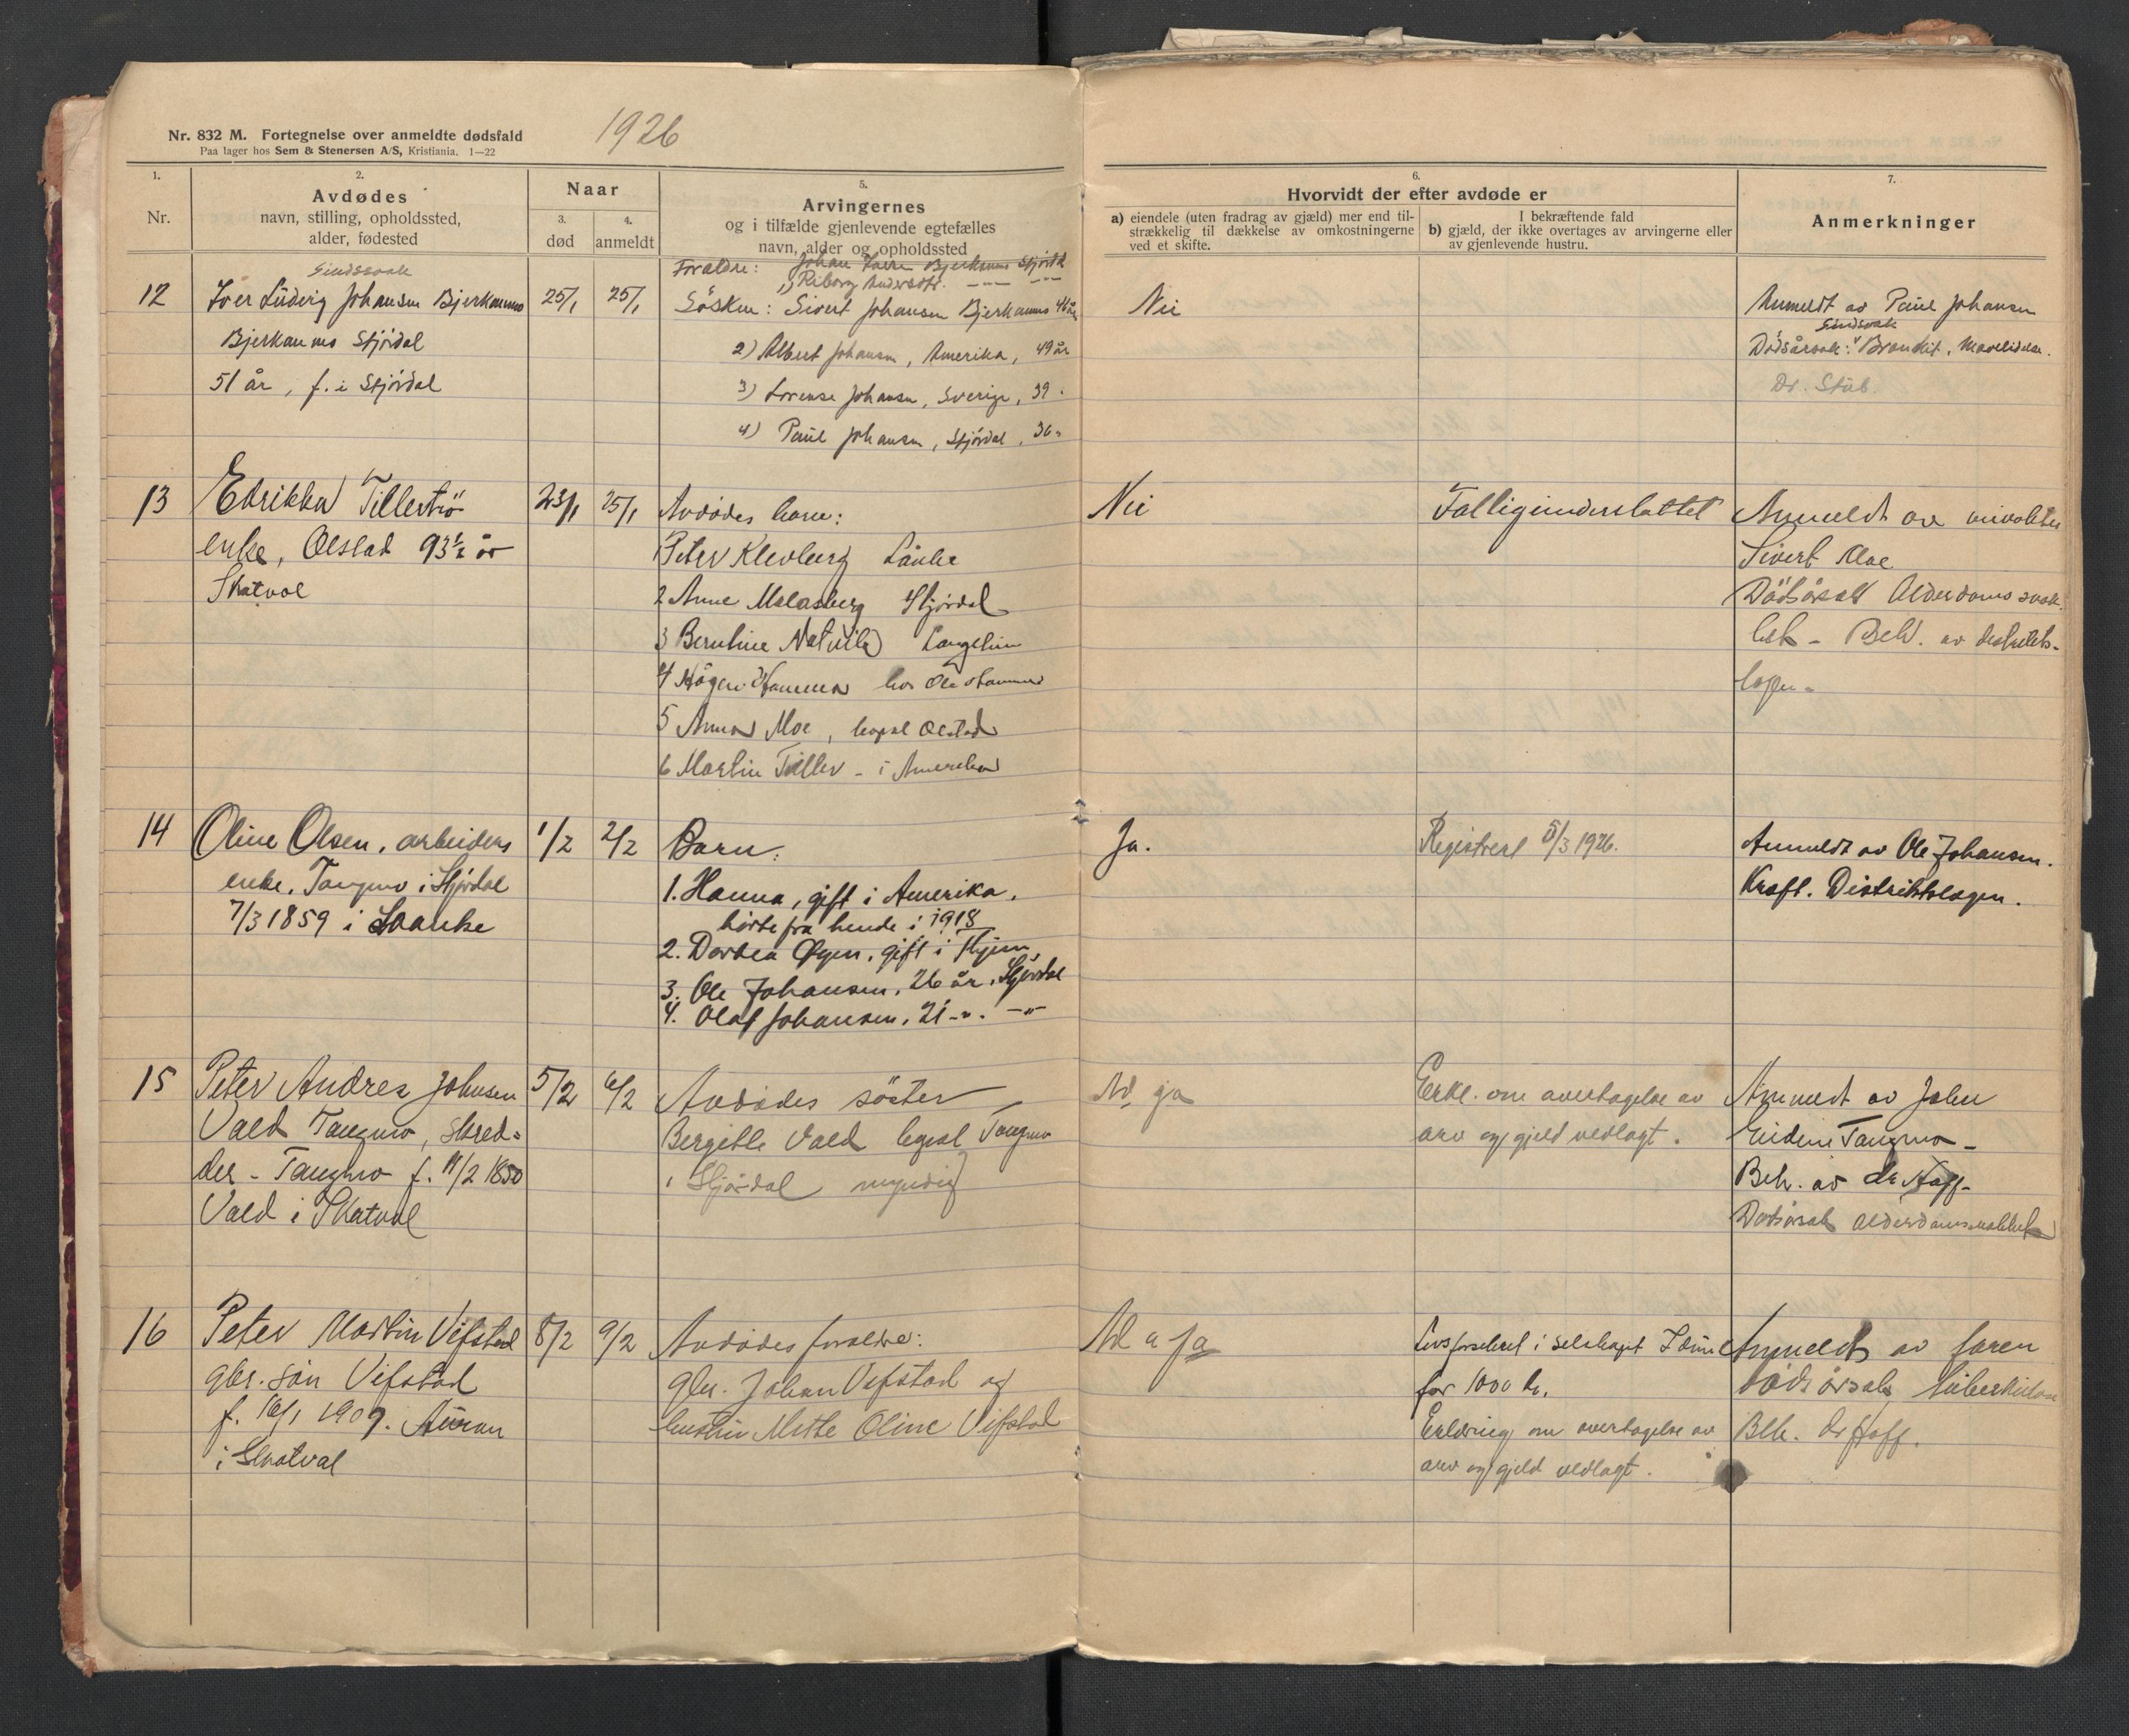 Nr. 832 M. Fortegnelse over anmeldte dødsfald
Paa lager hos Sem & Stenersen A/S, Kristiania. 1—22
1926
1.
Nr.
2.
Avdødes
navn, stilling, opholdssted,
alder, fødested
Naar
3.
død
4.
anmeldt
5.
Arvingernes
og i tilfælde gjenlevende egtefælles
navn, alder og opholdssted
6.
Hvorvidt der efter avdøde er
a) eiendele (uten fradrag av gjæld) mer end til-
strækkelig til dækkelse av omkostningerne
ved et skifte.
I bekræftende fald
b) gjæld, der ikke overtages av arvingerne eller
av gjenlevende hustru.
7.
Anmerkninger
12
Sindssvak
Iver Lüdvig Johansen Bjerkanmo
Bjerkanmo Stjördal
51 år, f. i Stjördal
25/1
25/1
Forældre: Johan Bjerkanmo Stjördal
Søsken: Sivert Johansen Bjerkanmo 46 år
2) Albert Johansen, Amerika, 49 år
3) Lorense Johansen, Sverige, 39
4) Paul Johansen, Stjördal, 36
Nei
Anmeldt av Paul Johansen
Sindsvak
Dödsårsak: Bronkit, Mavelidelse.
Dr. Stub.
13
Edrikka Tillertrö
enke, Olstad 93½ år
Skatval
23/1
25/1
Avdödes barn:
1 Peter Klevberg Lånke
2 Anne Malasberg Stjördal
3 Berntine Natvik
4 Hammer hos Ole Hammer
5 Anna Moe, bopæl Olstad
6 Martin Tiller - i Amerika
Nei
Fattigunderstøttet
Anmeldt av
Sivert Moe
Dödsårsak Alderdomssvak-
het - Beh. av distrikts-
lægen.
14
Oline Olsen, arbeiders
enke, Tangmo i Stjördal
7/3 1859 i Laanke
1/2
2/2
Barn:
1. Hanna, gift i Amerika,
hörte fra hende i 1918
2. Dortea Øyen, gift i
3. Ole Johansen, 26 år, Stjördal
4. Olaf Johansen, 21 -"- -"-
Ja.
Registrert 5/3 1926.
Anmeldt av Ole Johansen.
Kræft. Distriktslægen.
15
Peter Andreas Johnsen
Vald Tangmo, skred-
der - Tangmo f. 11/2 1850
Vald i Skatval
5/2
6/2
Avdødes söster
Bergitte Vald bopæl Tangmo
i Stjördal myndig
Ad ja
Erkl. om overtagelse av
arv og gjeld vedlagt.
Anmeldt av John
Tangmo -
Beh. av dr Hoff -
Dödsårsak alderdomssvakhet
16
Peter Martin Vifstad
gbr. sön Vifstad
f. 16/1 1909. Auran
i Skatval
8/2
9/2
Avdödes forældre:
gbr. Johan Vifstad og
hustru Mette Oline Vifstad
Ad a ja
Livsforsikret i selskapet Idun
for 1000 kr.
Erklæring om overtagelse av
arv og gjeld vedlagt.
Anmeldt av faren
Dödsårsak tüberkülose
Beh. dr Hoff.